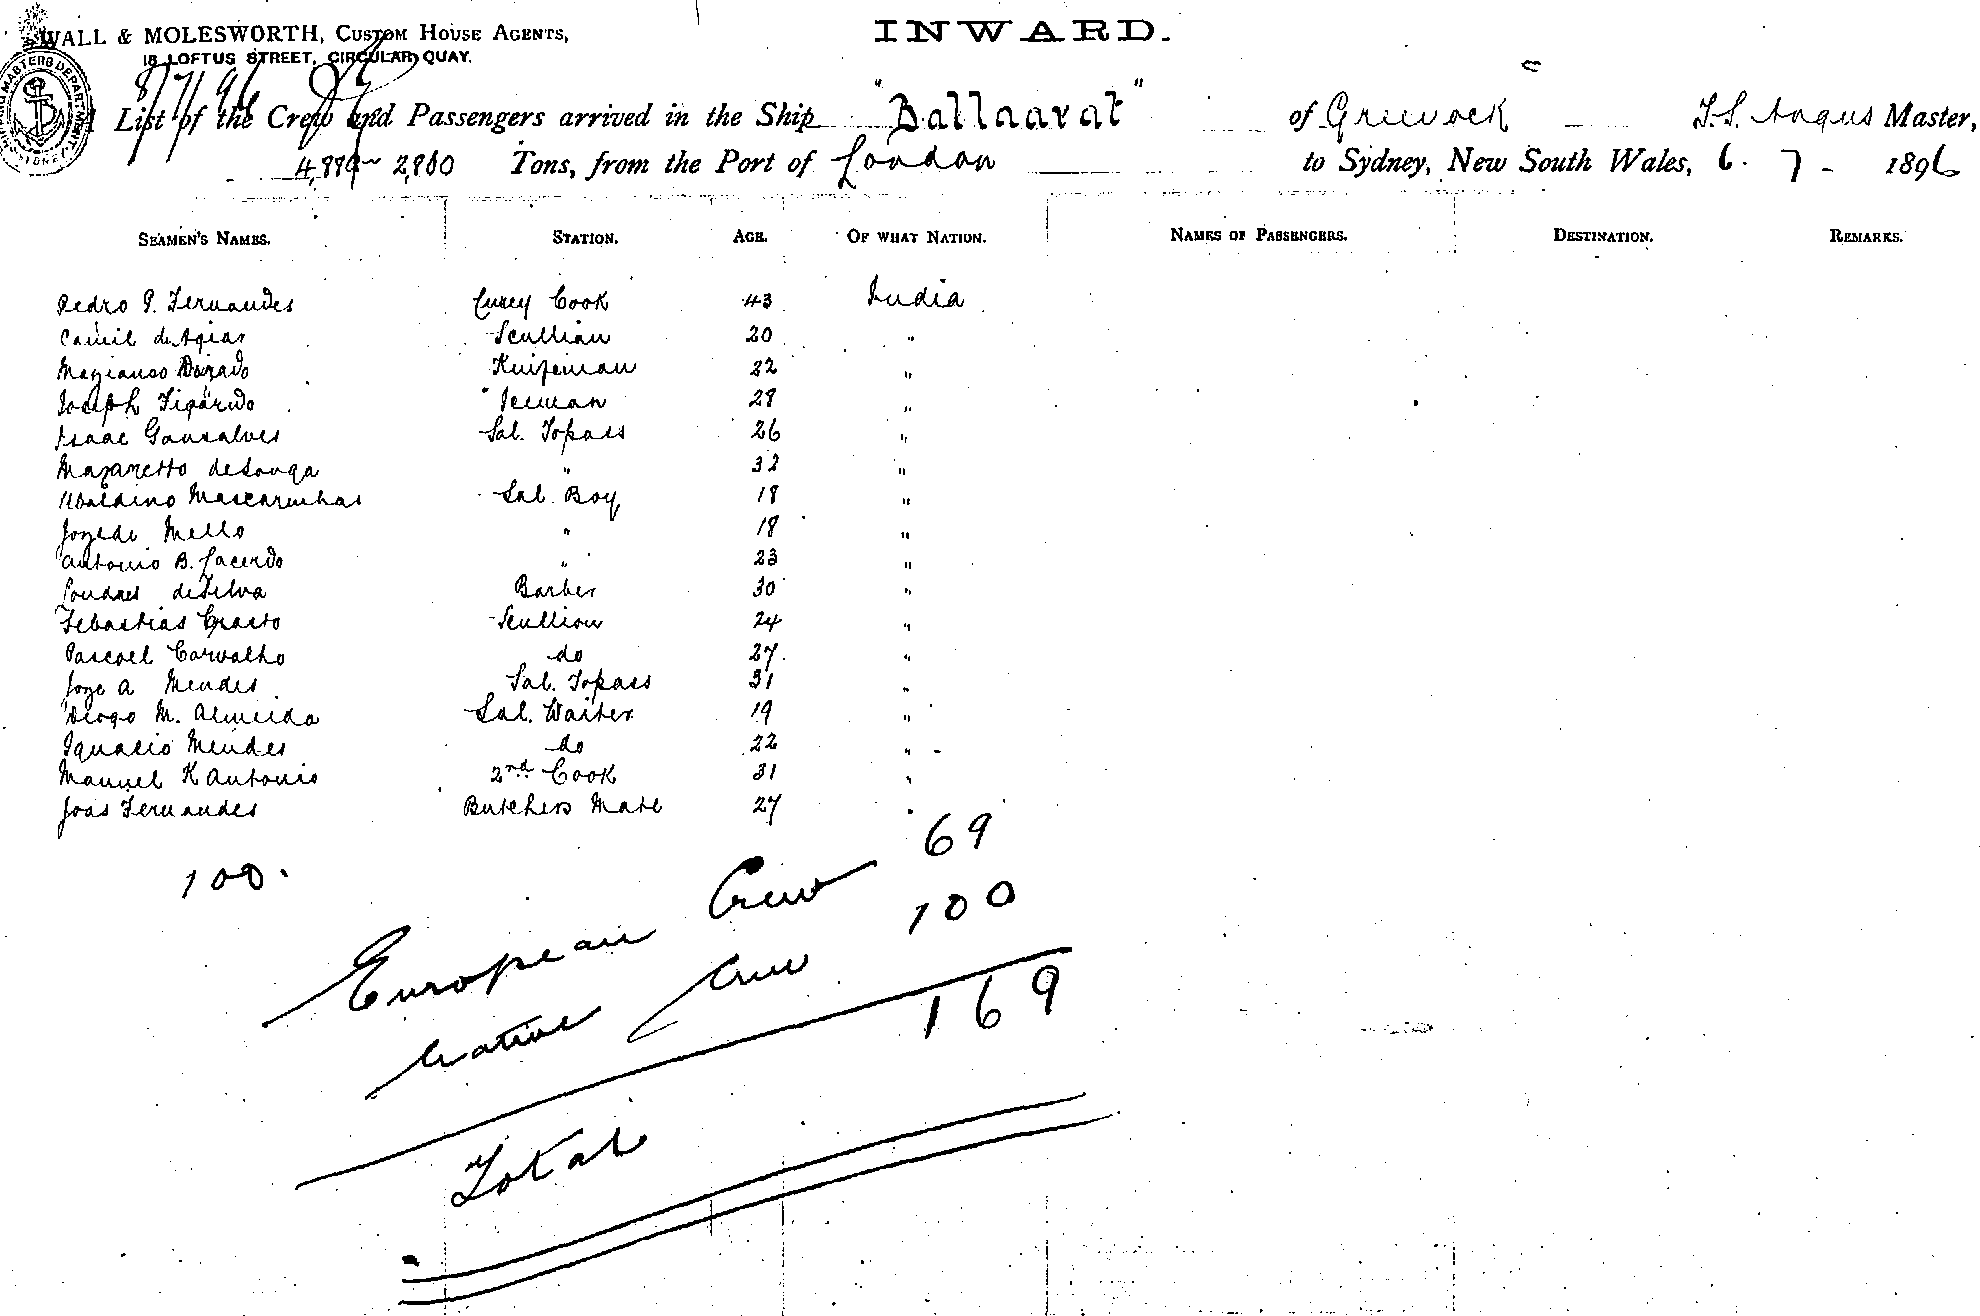 WALL & MOLESWORTH, CUSTOM HOUSE AGENTS,
18 LOFTUS STREET, CIRCULAR QUAY.
INWARD.
8/7/96
List of the Crew and Passengers arrived in the Ship "Ballaarat" of Greenock Master,
Tons, from the Port of London to Sydney, New South Wales, 6. 7 - 1896
SEAMEN'S NAMES. STATION. AGE. OF WHAT NATION. NAMES OF PASSENGERS. DESTINATION. REMARKS.
Pedro P. Fernandes Curry Cook 43 India
de Aguiar Scullian 20 "
Knifeman 22 "
Joseph Figardo Iceman 28 "
Isaac Gonsalves Sal. Topass 26 "
deSouza " 32 "
Ubaldino Mascarinhas Sal. Boy 18 "
Joze de Mello " 18 "
Antonio B. Lacerdo " 23 "
deSilva Barber 30 "
Sebastias Crasto Scullion 24 "
Pascoel Carvalho do 27 "
Joze A Mendes Sal. Topass 31 "
Diogo M. Almeida Sal. Waiter 19 "
Ignacio Mendes do 22 "
Manuel K Antonio 2nd Cook 31 "
Joas Fernandes Butchers Mate 27 "
100.
European Crew 69
Native Crew 100
Total 169